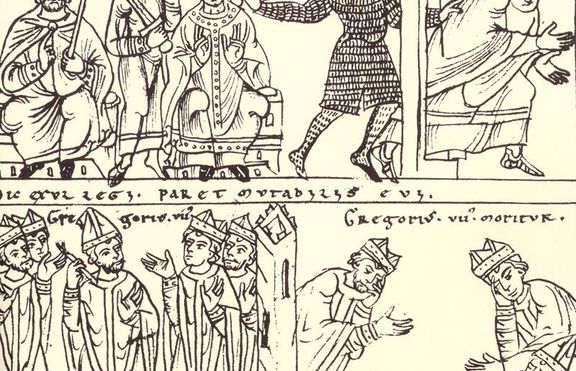 IC EXVL REGI. PARET MVTABILIS EVI.
Gregoris. vii⁹
Gregoris. vii⁹ moritur.